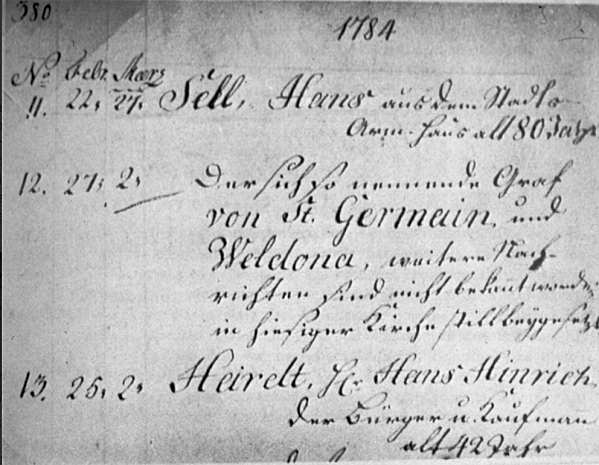 380
1784
No. Febr. Maerz
11. 22, 27, Sell, Hans aus dem Stadts-
Arm-Haus alt 80 Jahr
12. 27, 2, Der sich so nennende Graf
von St. Germain, und
Weldona, weitere Nach-
richten sind nicht bekannt worden
in hiesiger Kirche still beygesetzt
13. 25, 2, Heirelt, Hr. Hans Hinrich
der Bürger u. Kaufmann
alt 42 Jahr